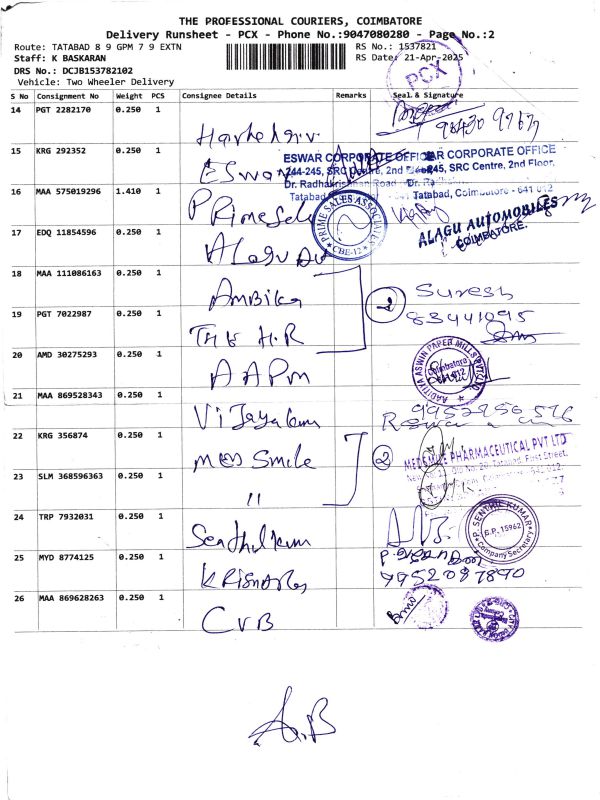 THE PROFESSIONAL COURIERS, COIMBATORE
Delivery Runsheet - PCX - Phone No.:9047080280 - Page No.:2
Route: TATABAD 8 9 GPM 7 9 EXTN
RS No.: 1537821
Staff: K BASKARAN
RS Date: 21-Apr-2025
DRS No.: DCJB153782102
Vehicle: Two Wheeler Delivery
PCX
S No Consignment No Weight PCS Consignee Details Remarks Seal & Signature
14 PGT 2282170 0.250 1
15 KRG 292352 0.250 1 Eswar
ESWAR CORPORATE OFFICE
AR CORPORATE OFFICE
244-245, SRC Centre, 2nd Floor,
245, SRC Centre, 2nd Floor,
Dr. Radhakrishnan Road
Tatabad, Coimbatore - 641 012
16 MAA 575019296 1.410 1 Prime Sales
PRIME SALES ASSOCIATES
CBE-12
17 EDQ 11854596 0.250 1 Alagu Au
ALAGU AUTOMOBILES
COIMBATORE.
18 MAA 111086163 0.250 1 Ambika
2 Suresh
19 PGT 7022987 0.250 1 H.R
20 AMD 30275293 0.250 1 AAPM
AADITYA ASWIN PAPER MILLS PVT LTD
Coimbatore
21 MAA 869528343 0.250 1 Vijayakum
22 KRG 356874 0.250 1 Med Smile
2
MEDSMILE PHARMACEUTICAL PVT LTD
23 SLM 368596363 0.250 1 "
24 TRP 7932031 0.250 1 Senthilkum
P. SENTHIL KUMAR
G.P. 15962
Company Secretary
25 MYD 8774125 0.250 1
9952087890
26 MAA 869628263 0.250 1 CVB
A.B